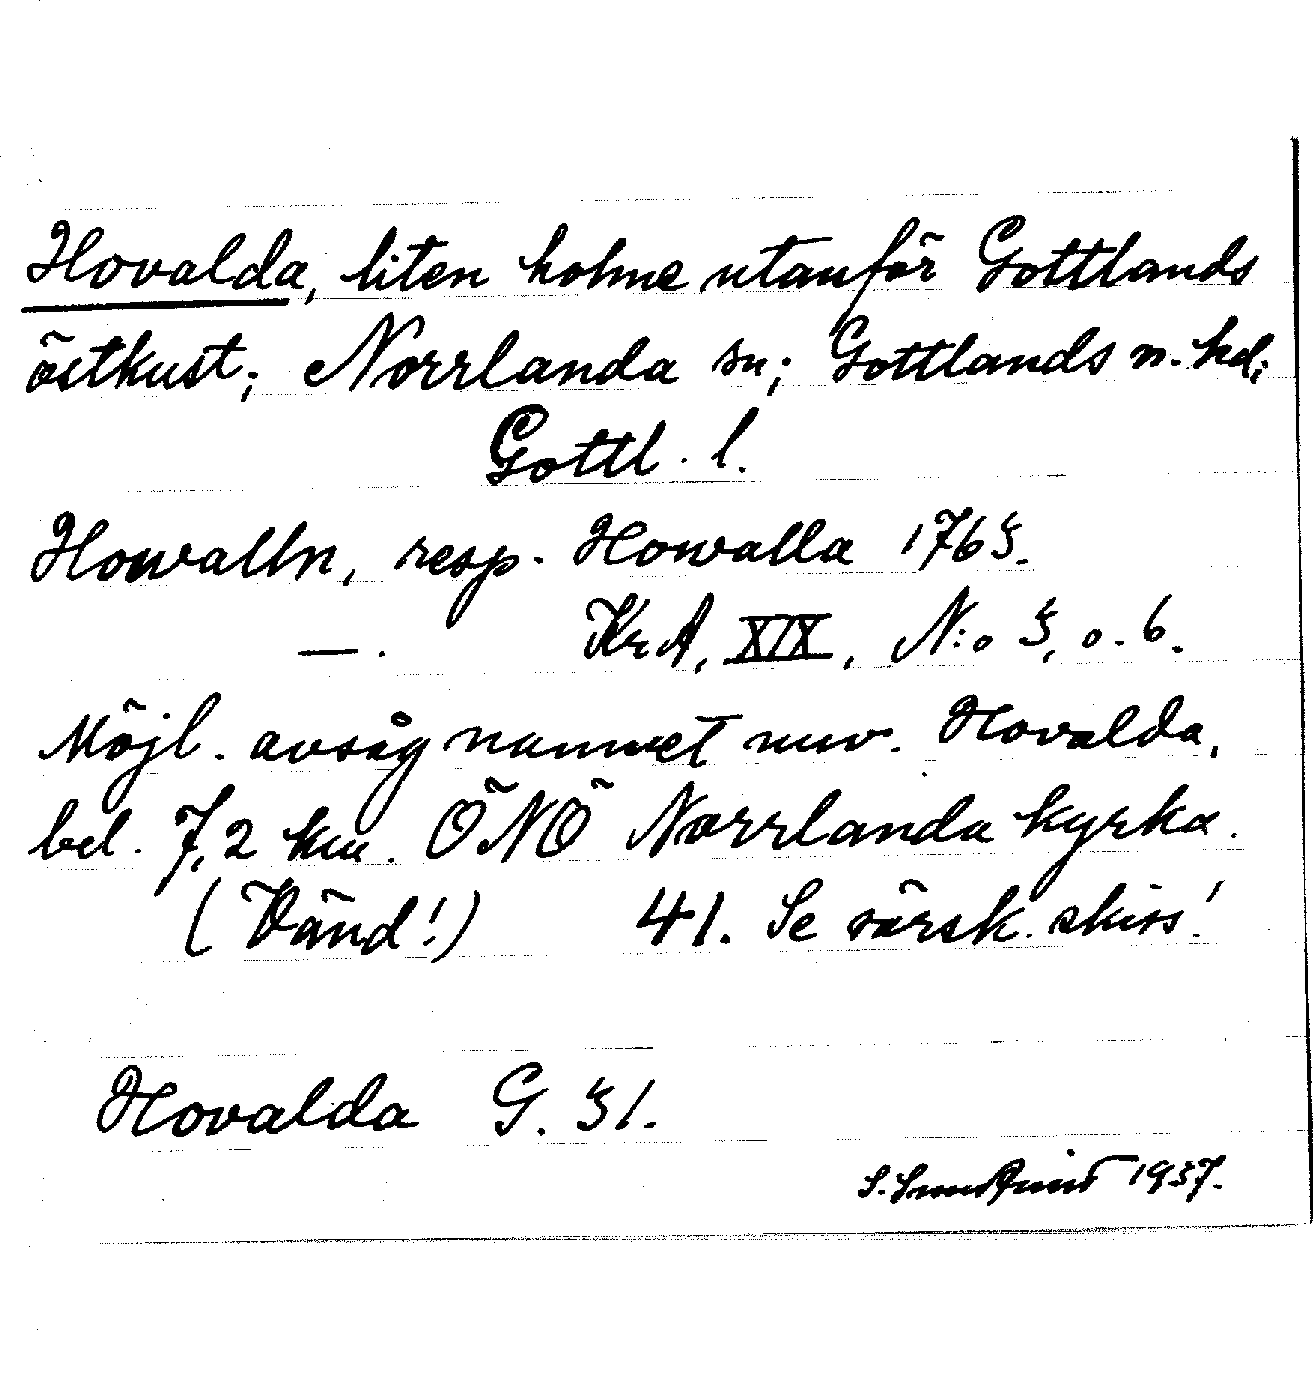 Hovalda, liten holme utanför Gottlands
östkust; Norrlanda sn; Gottlands n. hd;
Gottl. l.
Howalln, resp. Howalla 1765.
— . KrA, XIX, N:o 5, o. 6.
Möjl. avsåg namnet nuv. Hovalda,
bel. 7,2 km. ÖNÖ Norrlanda kyrka.
(Vänd!) 41. Se särsk. skiss!
Hovalda G. 51.
S. 1937.